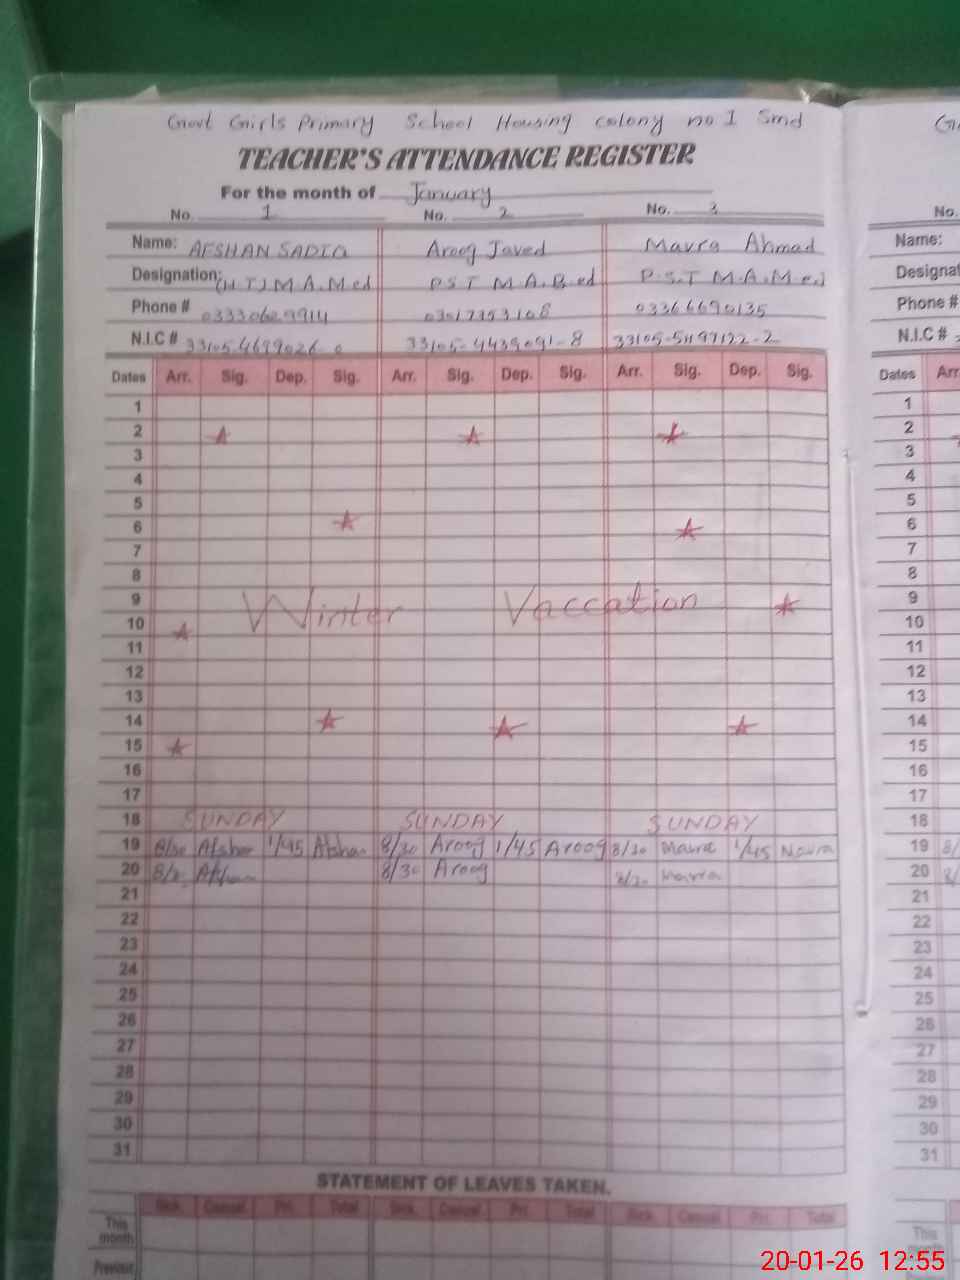 Govt Girls Primary School Housing colony no 1 Smd
TEACHER'S ATTENDANCE REGISTER
For the month of January
No. 1 No. 2 No. 3
Name: AFSHAN SADIQ Arooj Javed Mavra Ahmad
Designation: (H.T) M.A. M.ed P.S.T M.A. B.ed P.S.T M.A. M.ed
Phone # 03366690135
N.I.C #
Dates Arr. Sig. Dep. Sig. Arr. Sig. Dep. Sig. Arr. Sig. Dep. Sig.
1
2
3
4
5
6
7
8
9
Winter Vaccation
10
11
12
13
14
15
16
17
18 SUNDAY SUNDAY SUNDAY
19 8/30 Afshan 1/45 Afshan 8/30 Arooj 1/45 Arooj 8/30 Mavra 1/45 Mavra
20 8/30 Afshan 8/30 Arooj 8/30 Mavra
21
22
23
24
25
26
27
28
29
30
31
STATEMENT OF LEAVES TAKEN.
Sick Casual Pri. Total Sick Casual Pri. Total Sick Casual Pri. Total
This month
Previous
No.
Name:
Designat
Phone #
N.I.C #
Dates Arr
1
2
3
4
5
6
7
8
9
10
11
12
13
14
15
16
17
18
19 8/
20 8/
21
22
23
24
25
26
27
28
29
30
31
This month
20-01-26 12:55